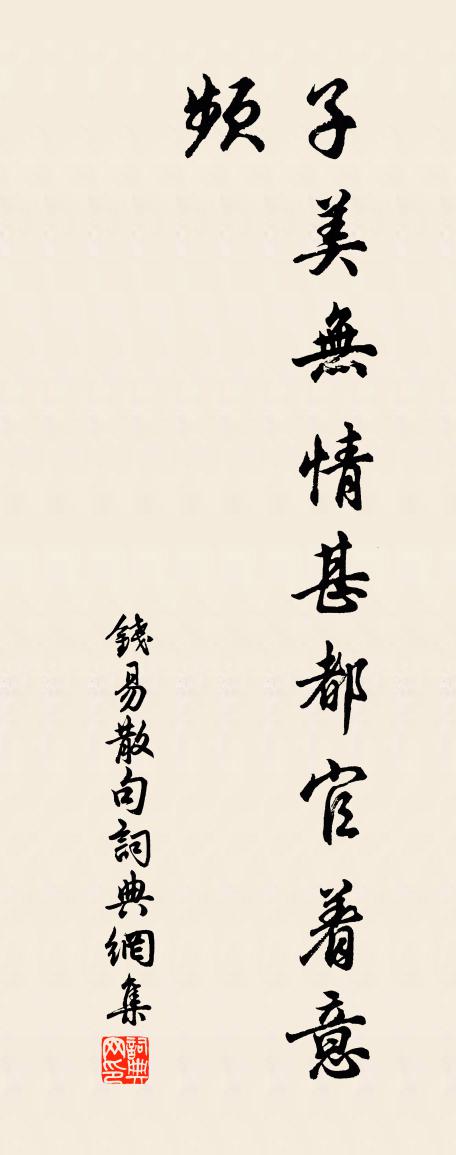 子美無情甚都官着意
頻
錢易散句詞典網集
詞典网印